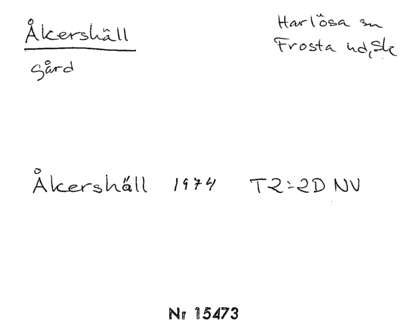 Åkershäll
Harlösa sn
Frosta hd, Sk
gård
Åkershäll 1974 T2:2D NV
Nr 15473